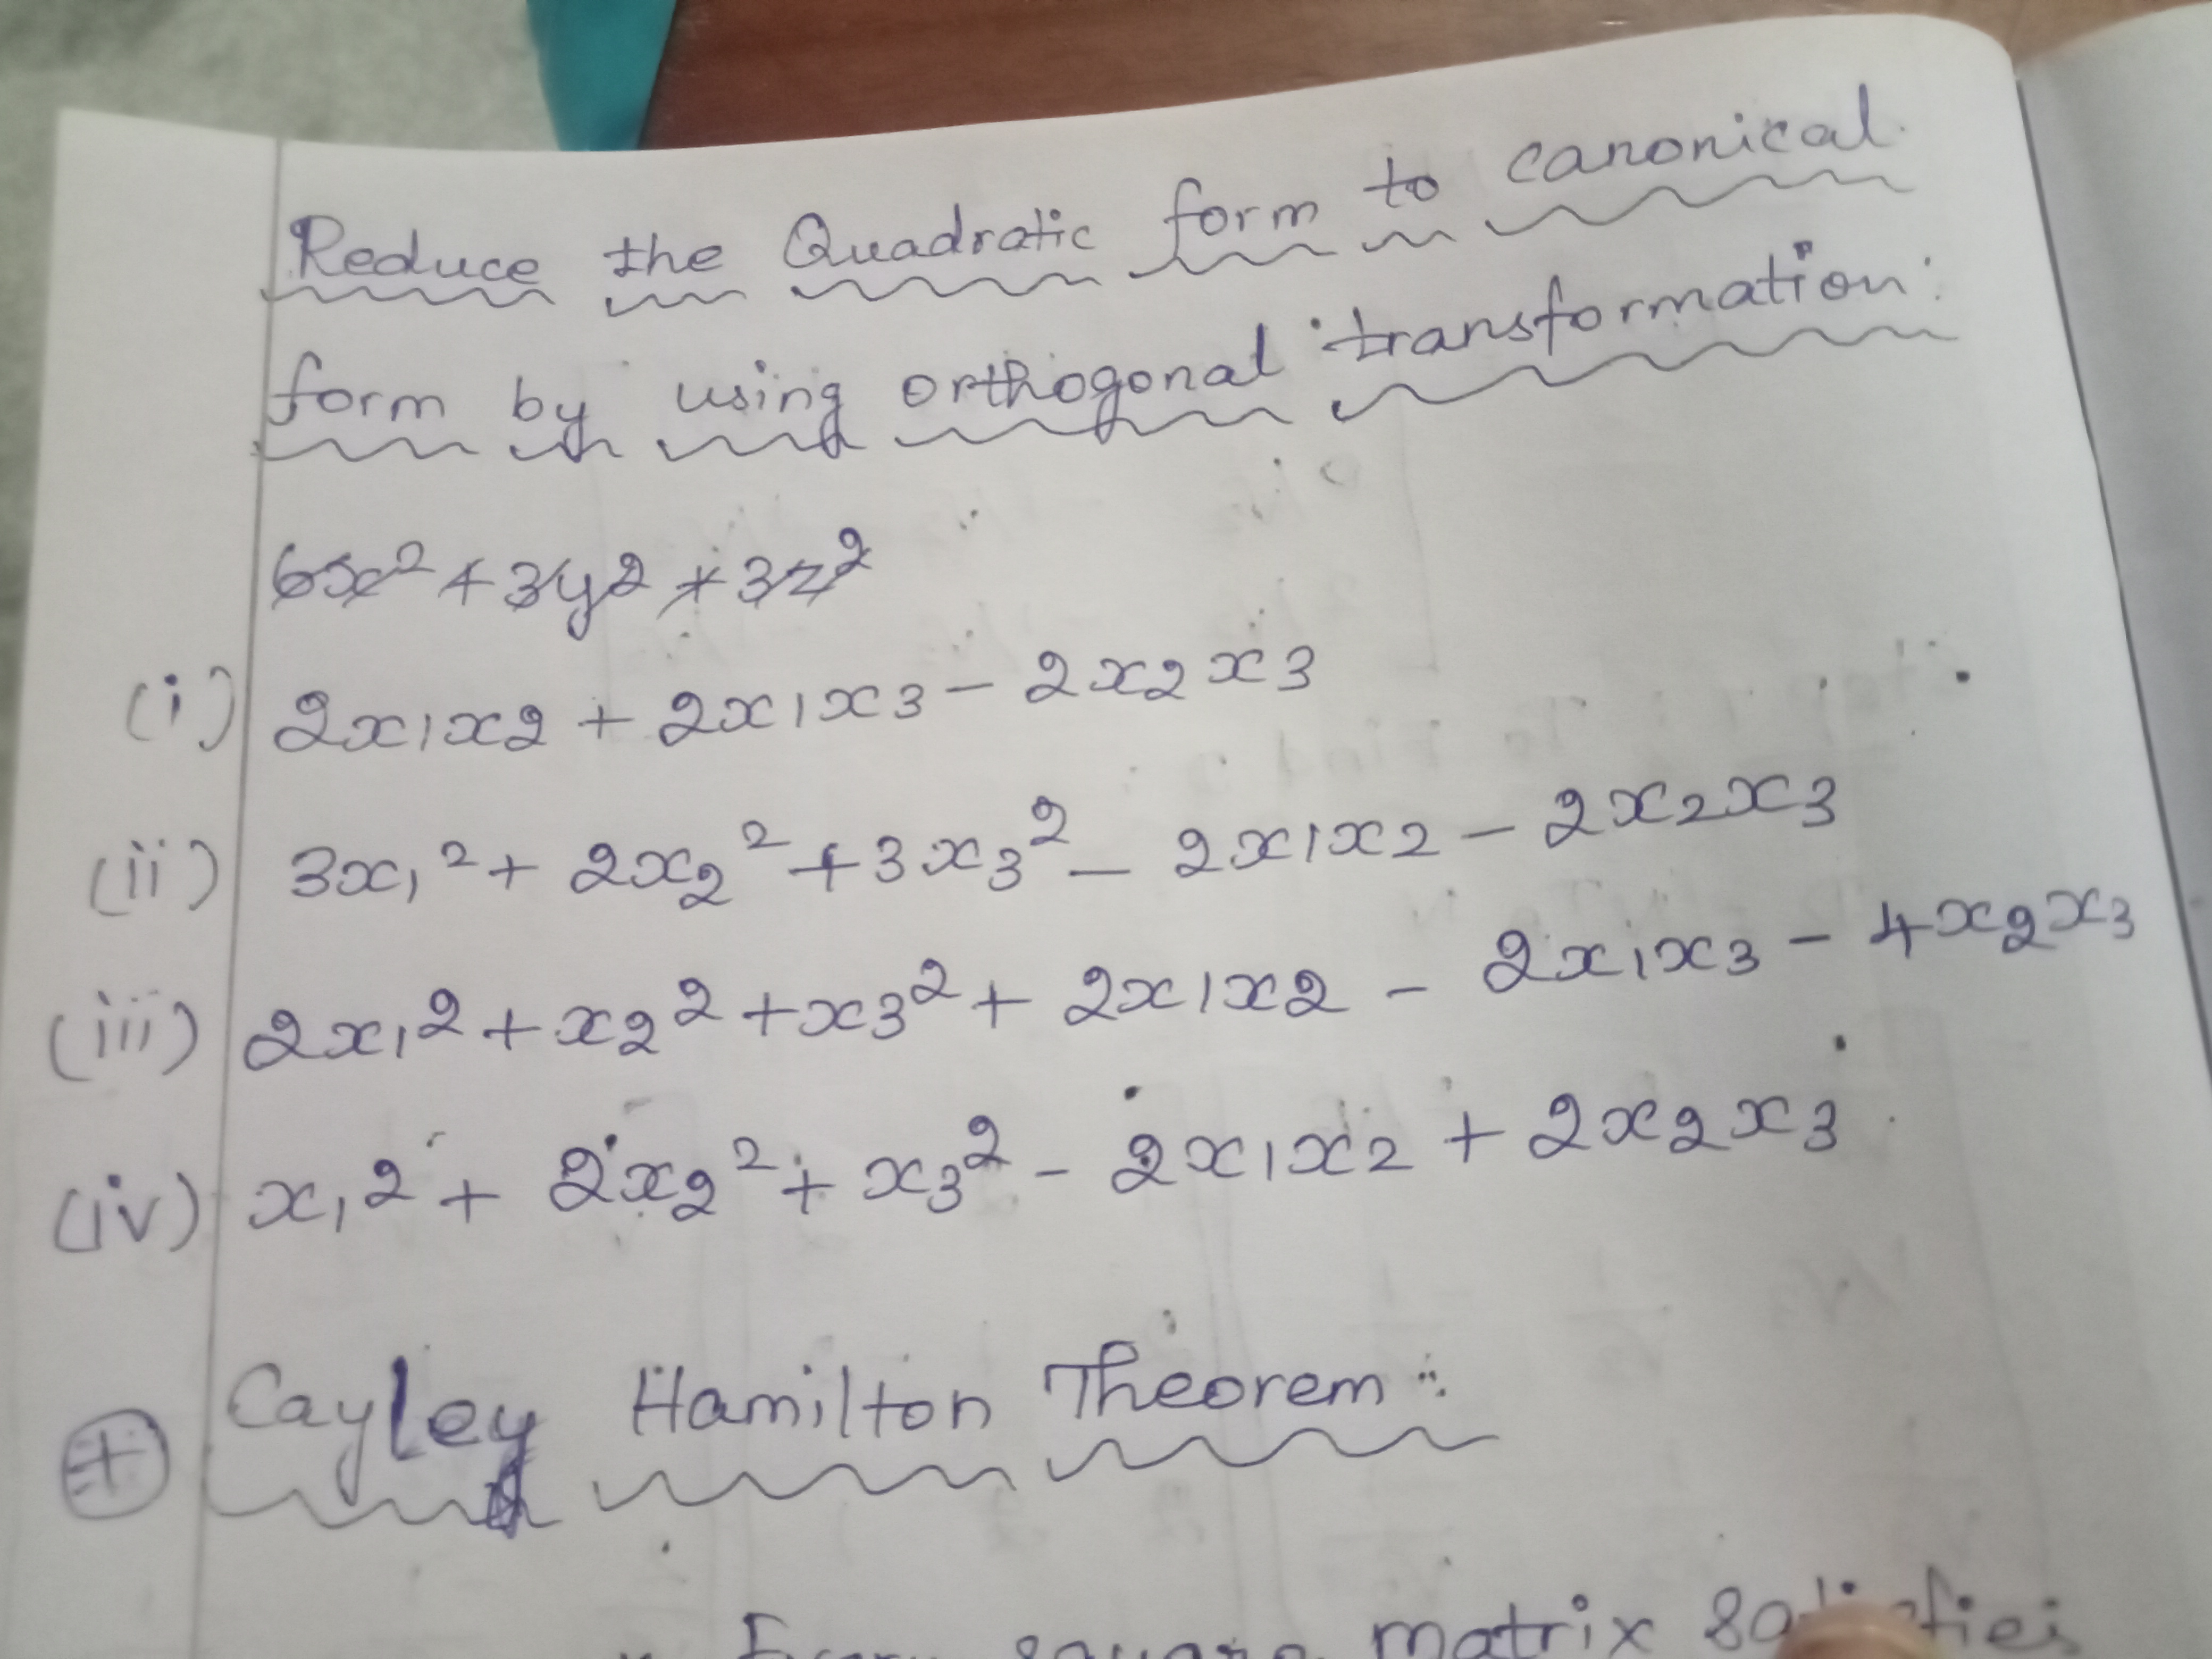 Reduce the Quadratic form to canonical
form by using orthogonal transformation:
6x² + 3y² + 3z²
(i) 2x₁x₂ + 2x₁x₃ - 2x₂x₃
(ii) 3x₁² + 2x₂² + 3x₃² - 2x₁x₂ - 2x₂x₃
(iii) 2x₁² + x₂² + x₃² + 2x₁x₂ - 2x₁x₃ - 4x₂x₃
(iv) x₁² + 2x₂² + x₃² - 2x₁x₂ + 2x₂x₃
Cayley Hamilton Theorem:
Every square matrix satisfies